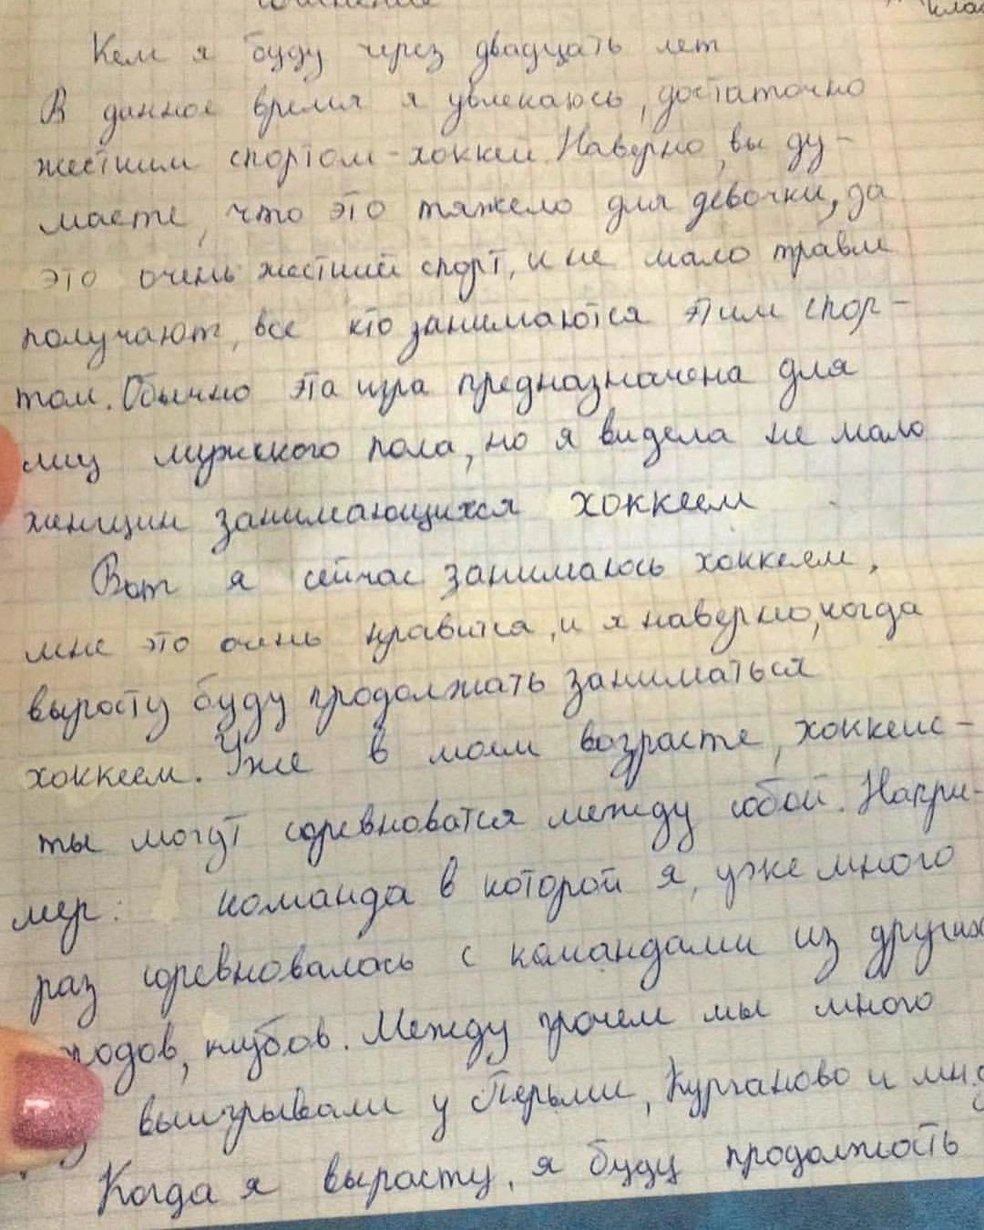 Кем я буду через двадцать лет
В данное время я увлекаюсь, достаточно
жестким спортом-хоккей. Наверно, вы ду-
маете, что это тяжело для девочки, да
это очень жесткий спорт, и не мало травм
получают, все кто занимаются этим спор-
том. Обычно эта игра предназначена для
лиц мужского пола, но я видела не мало
женщин занимающихся хоккеем
Вот я сейчас занимаюсь хоккеем,
мне это очень нравится, и я наверно, когда
выросту буду продолжать заниматься
хоккеем. Уже в моем возрасте, хоккеис-
ты могут соревноватся между собой. Напри-
мер: команда в которой я, уже много
раз соревновалась с командами из других
родов, клубов. Между прочем мы много
выигрывали у Перьми, Курганово и
Когда я вырасту, я буду продолжость